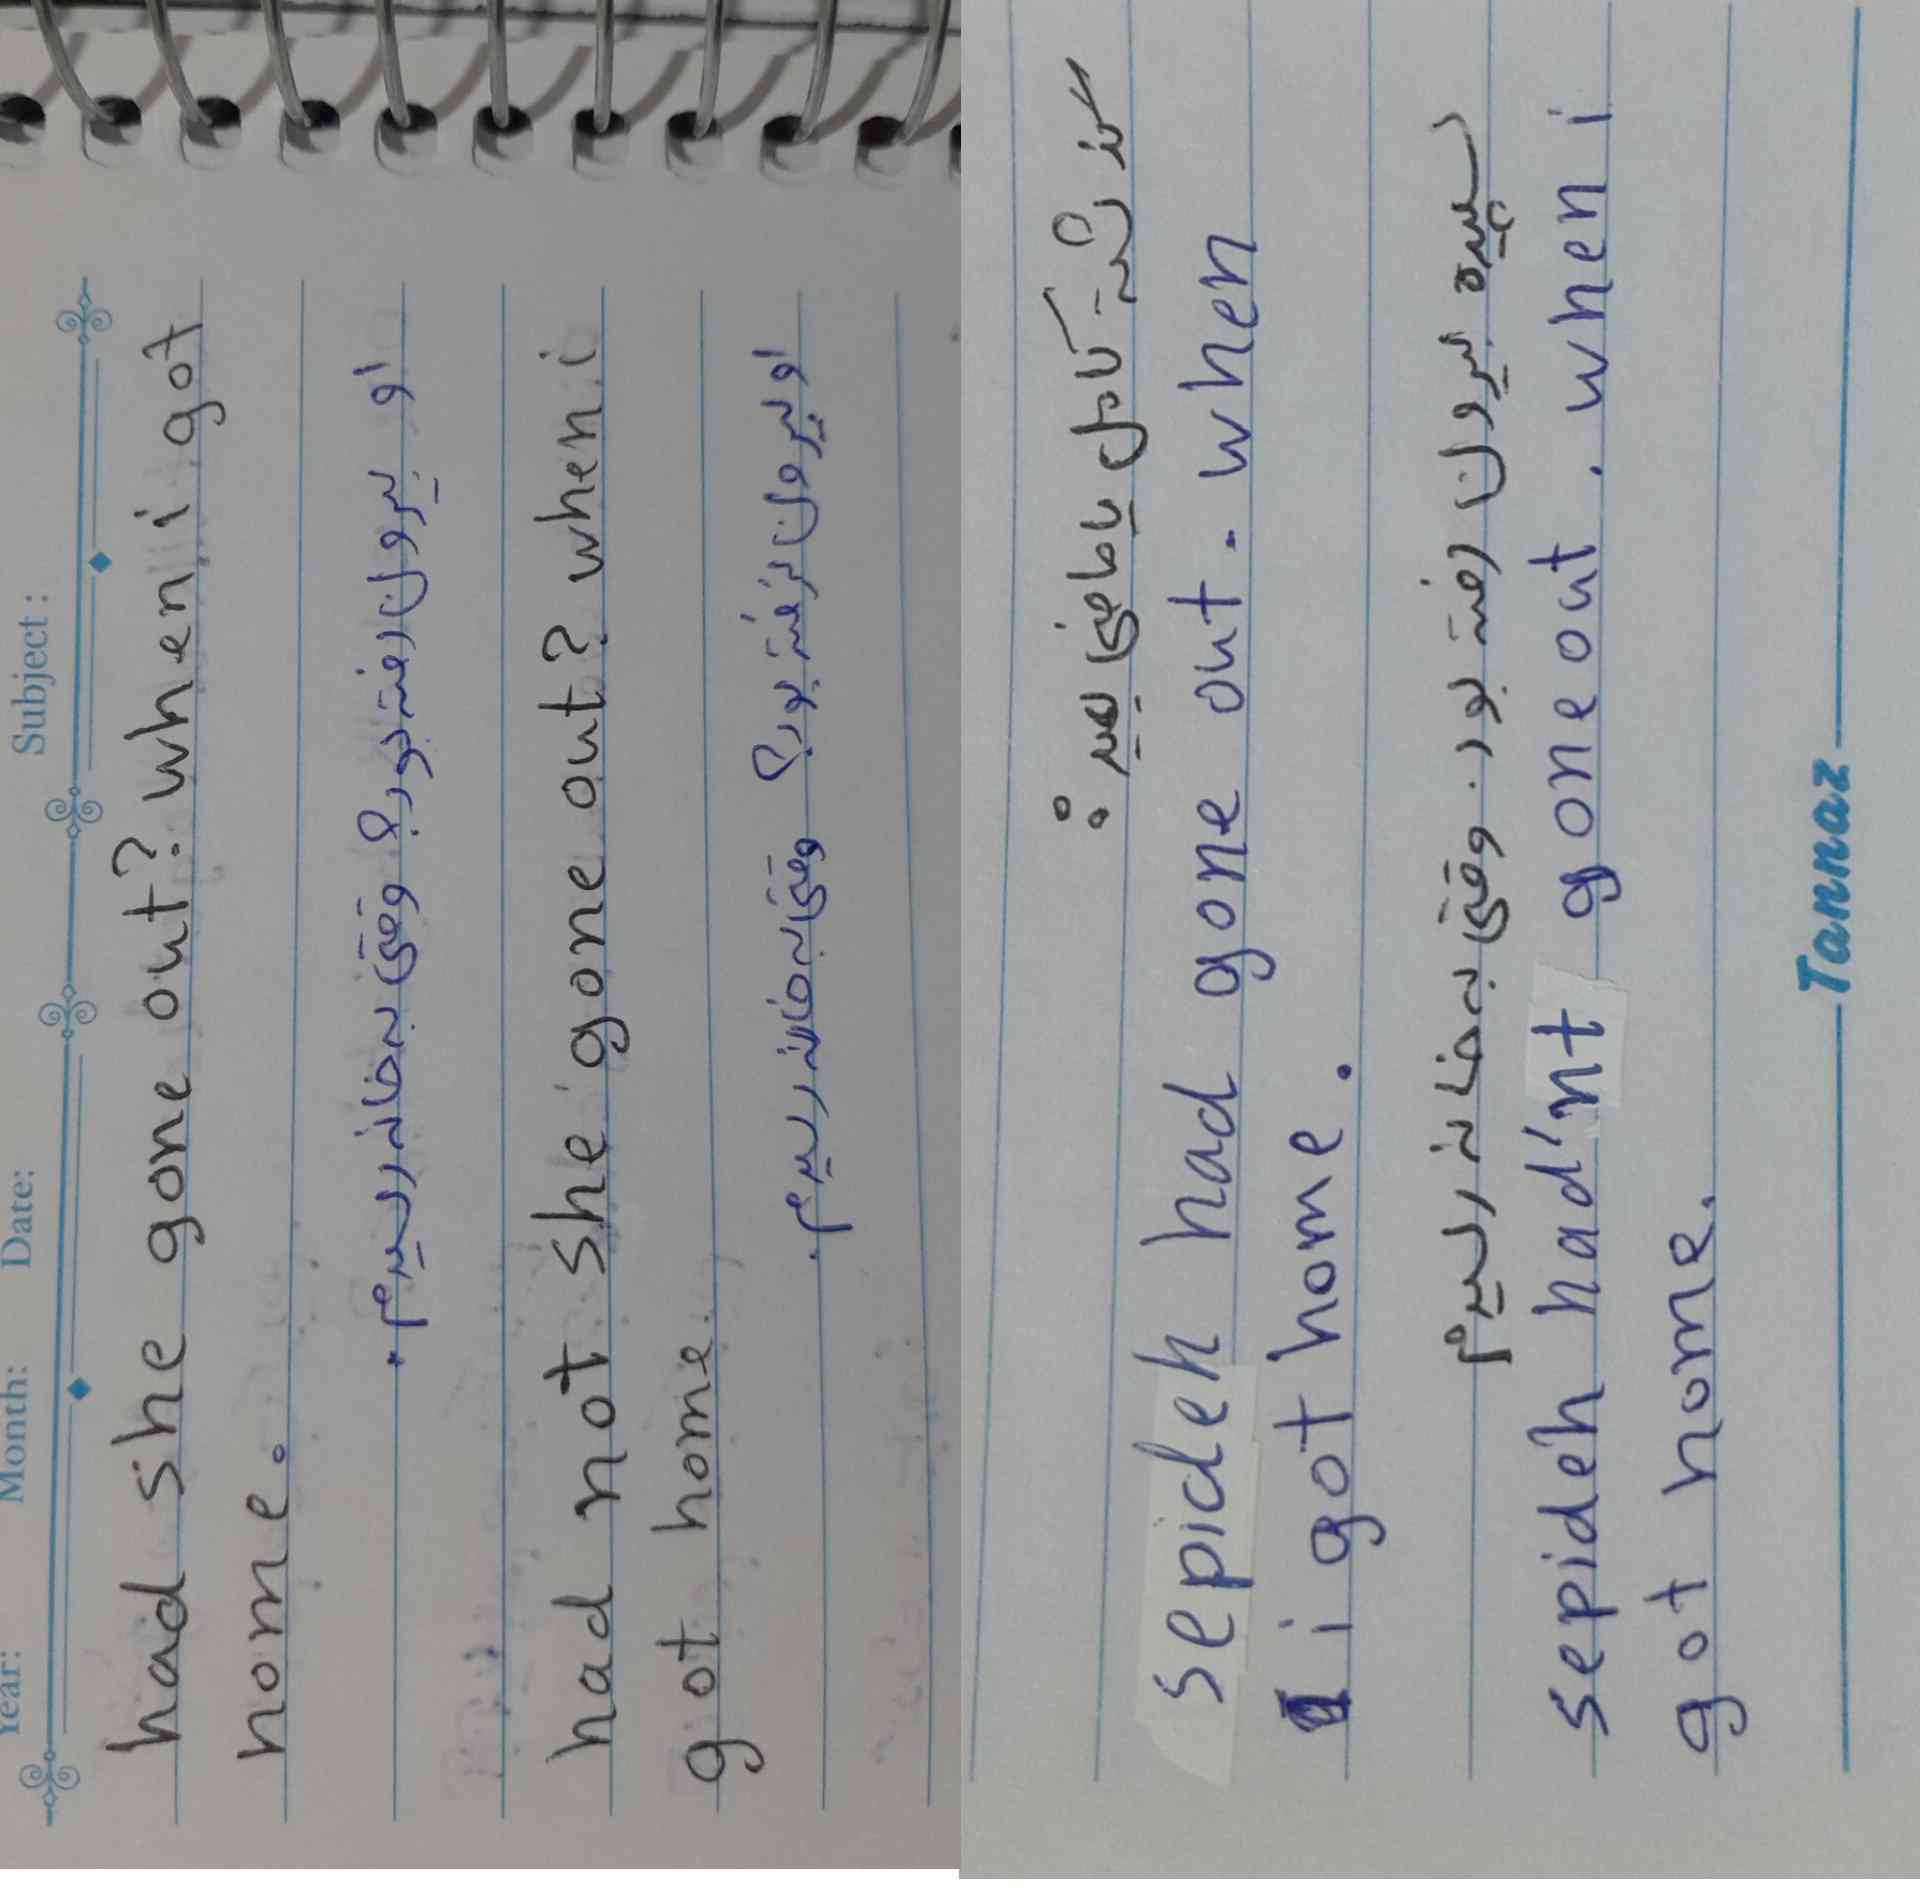 Year: Month: Date: Subject :
had she gone out? when i got
home.
او بیرون رفته بود؟ وقتی به خانه رسیدم.
had not she gone out? when i
got home.
او بیرون نرفته بود؟ وقتی به خانه رسیدم.
گذشته کامل یا ماضی بعید :
sepideh had gone out. when
i got home.
سپیده بیرون رفته بود. وقتی به خانه رسیدم
sepideh had'nt gone out. when i
got home.
Tannaz